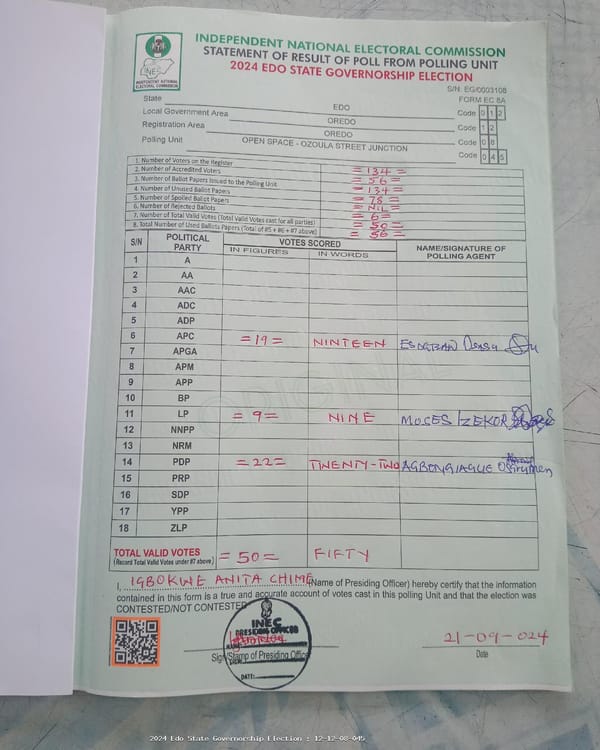 INDEPENDENT NATIONAL ELECTORAL COMMISSION
STATEMENT OF RESULT OF POLL FROM POLLING UNIT
2024 EDO STATE GOVERNORSHIP ELECTION
INEC
INDEPENDENT NATIONAL
ELECTORAL COMMISSION
S/N: EG/0003108
FORM EC 8A
State EDO Code 0 1 2
Local Government Area OREDO Code 1 2
Registration Area OREDO Code 0 8
Polling Unit OPEN SPACE - OZOULA STREET JUNCTION Code 0 4 5
1. Number of Voters on the Register =134=
2. Number of Accredited Voters =56=
3. Number of Ballot Papers Issued to the Polling Unit =134=
4. Number of Unused Ballot Papers =78=
5. Number of Spoiled Ballot Papers =NIL=
6. Number of Rejected Ballots =6=
7. Number of Total Valid Votes (Total Valid Votes cast for all parties) =50=
8. Total Number of Used Ballots Papers (Total of #5 + #6 + #7 above) =56=
S/N POLITICAL PARTY VOTES SCORED NAME/SIGNATURE OF POLLING AGENT
IN FIGURES IN WORDS
1 A
2 AA
3 AAC
4 ADC
5 ADP
6 APC =19= NINTEEN
7 APGA
8 APM
9 APP
10 BP
11 LP =9= NINE MOSES IZEKOR
12 NNPP
13 NRM
14 PDP =22= TWENTY-TWO
15 PRP
16 SDP
17 YPP
18 ZLP
TOTAL VALID VOTES =50= FIFTY
(Record Total Valid Votes under #7 above)
I, IGBOKWE ANITA CHIME (Name of Presiding Officer) hereby certify that the information
contained in this form is a true and accurate account of votes cast in this polling Unit and that the election was
CONTESTED/NOT CONTESTED
INEC
PRESIDING OFFICER
SIGN:
DATE:
Sign/Stamp of Presiding Officer
21-09-024
Date
2024 Edo State Governorship Election : 12-12-08-045